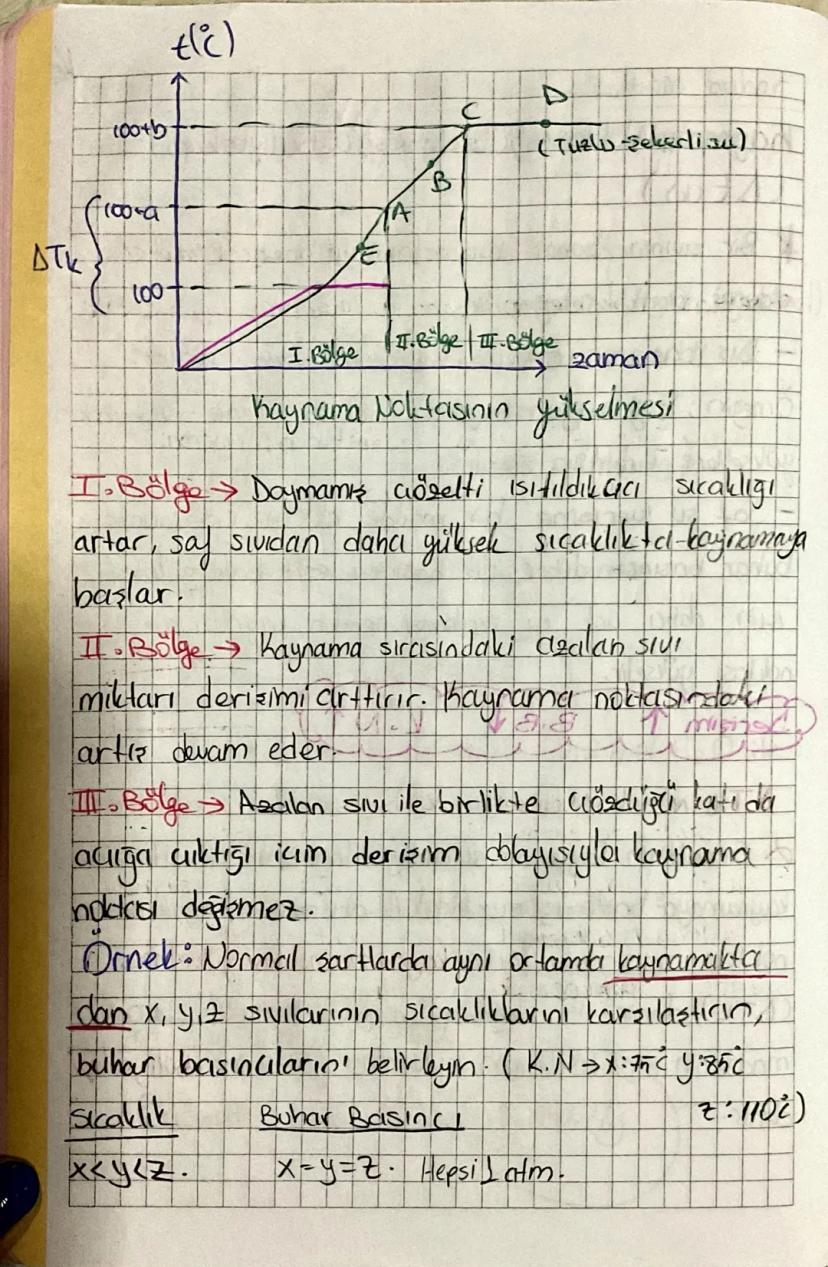 t(°C)
D
C
100+b
(Tuzlu-şekerli su)
B
100+a
A
ΔTk
E
100
I.Bölge II.Bölge III.Bölge zaman
Kaynama Noktasının yükselmesi
I.Bölge → Doymamış çözelti ısıtıldıkça sıcaklığı
artar, saf sıvıdan daha yüksek sıcaklıkta kaynamaya
başlar.
II.Bölge → Kaynama sırasındaki azalan sıvı
miktarı derişimi arttırır. Kaynama noktasındaki
artış devam eder.
III.Bölge → Azalan sıvı ile birlikte çözdüğü katı da
açığa çıktığı için derişim dolayısıyla kaynama
noktası değişmez.
Örnek: Normal şartlarda aynı ortamda kaynamakta
dan x, y, z sıvılarının sıcaklıklarını karşılaştırın,
buhar basınçlarını belirleyin. (K.N → x:75°C y:85°C
z:110°C)
Sıcaklık Buhar Basıncı
x<y<z. x=y=z. Hepsi 1 atm.